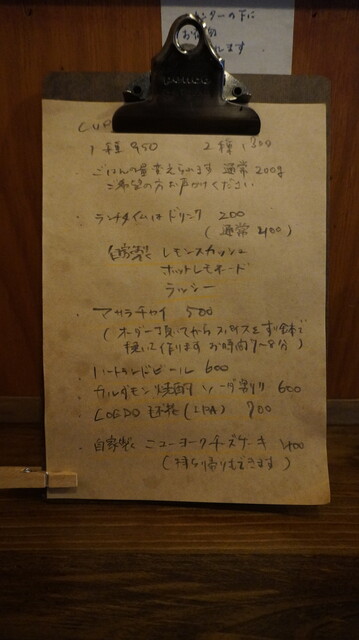 カウンターの下に
お
します
CU
1種 950 2種 1300
ごはんの量変えられます 通常 200g
ご希望の方お声がけください
・ランチタイムはドリンク 200
(通常 400)
自家製 レモンスカッシュ
ホットレモネード
ラッシー
・マサラチャイ 500
(オーダー頂いてからスパイスをすり鉢で
挽いて作ります お時間7〜8分)
・ハートランドビール 600
カルダモン焼酎 ソーダ割り 600
・COEDO 毬花 (IPA) 700
・自家製 ニューヨークチーズケーキ 400
(持ち帰りもできます)